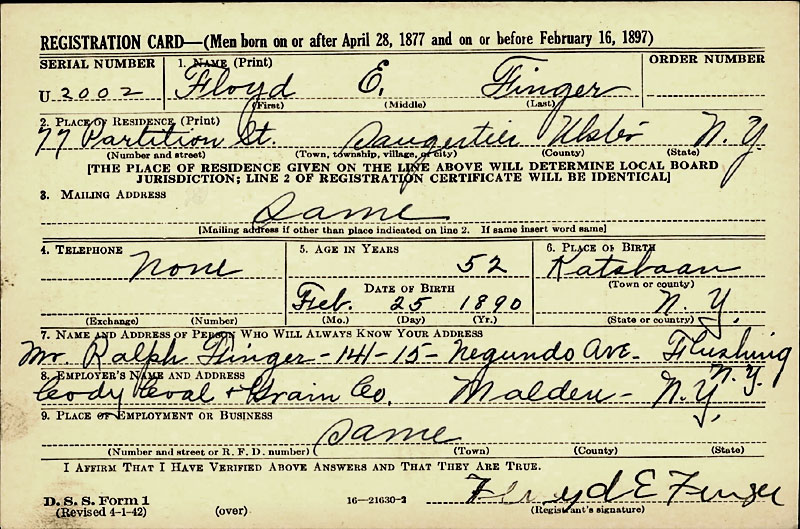 REGISTRATION CARD—(Men born on or after April 28, 1877 and on or before February 16, 1897)
SERIAL NUMBER 1. NAME (Print) ORDER NUMBER
U 2002 Floyd E. Finger
(First) (Middle) (Last)
2. PLACE OF RESIDENCE (Print)
77 Partition St. Saugerties Ulster N. Y
(Number and street) (Town, township, village, or city) (County) (State)
[THE PLACE OF RESIDENCE GIVEN ON THE LINE ABOVE WILL DETERMINE LOCAL BOARD
JURISDICTION; LINE 2 OF REGISTRATION CERTIFICATE WILL BE IDENTICAL]
3. MAILING ADDRESS
Same
[Mailing address if other than place indicated on line 2. If same insert word same]
4. TELEPHONE 5. AGE IN YEARS 6. PLACE OF BIRTH
None 52 Katsbaan
DATE OF BIRTH (Town or county)
Feb. 25 1890 N. Y.
(Exchange) (Number) (Mo.) (Day) (Yr.) (State or country)
7. NAME AND ADDRESS OF PERSON WHO WILL ALWAYS KNOW YOUR ADDRESS
Mr. Ralph Finger - 141-15- Negundo Ave. Flushing
N. Y.
8. EMPLOYER'S NAME AND ADDRESS
Cody Coal + Grain Co. Malden - N. Y.
9. PLACE OF EMPLOYMENT OR BUSINESS
Same
(Number and street or R. F. D. number) (Town) (County) (State)
I AFFIRM THAT I HAVE VERIFIED ABOVE ANSWERS AND THAT THEY ARE TRUE.
Floyd E Finger
D. S. S. Form 1 16—21630-2 (Registrant's signature)
(Revised 4-1-42) (over)